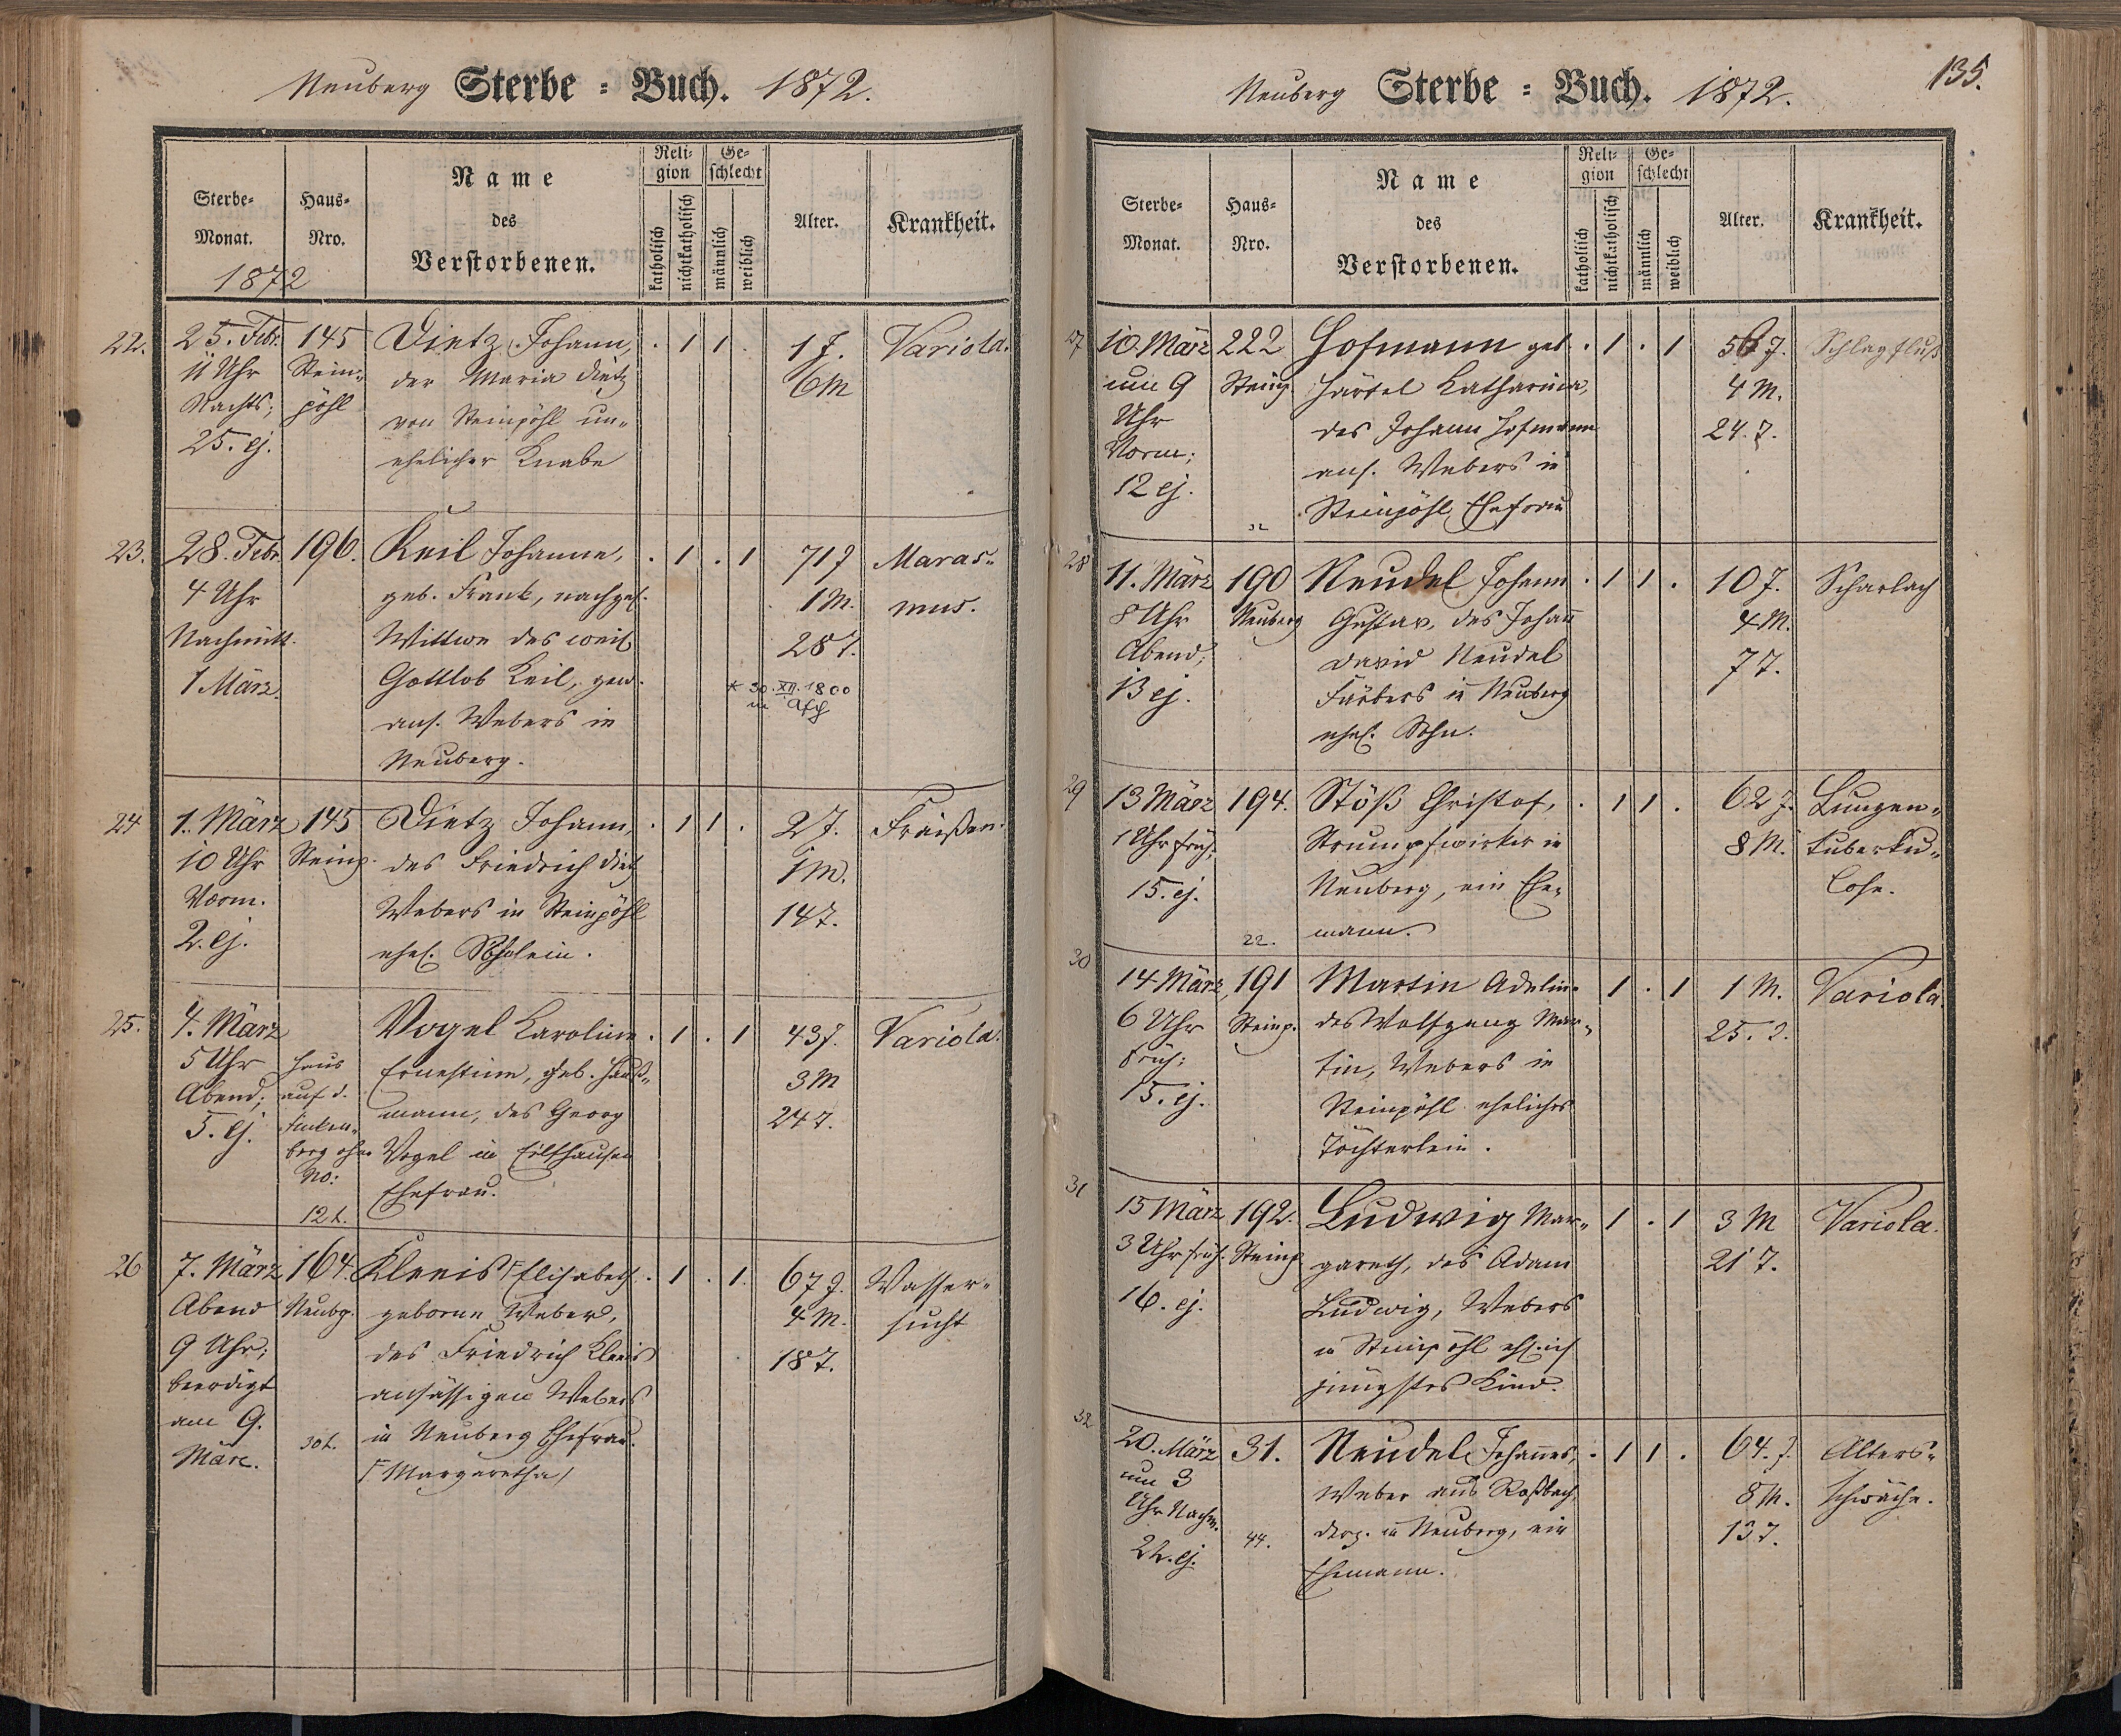 Neuberg Sterbe = Buch. 1872.
Sterbe-
Monat.
1872
Haus-
Nro.
Name
des
Verstorbenen.
Reli-
gion
katholisch
nichtkatholisch
Ge-
schlecht
männlich
weiblich
Alter.
Krankheit.
22.
25. Febr.
11 Uhr
Nachts;
25. ej.
145
Stein-
pöhl
Dietz Johann,
der Maria Dietz
von Steinpöhl un-
ehelicher Knabe
. 1 1 .
1 J.
6 M
Variola.
23.
28. Febr.
4 Uhr
Nachmitt.
1 März.
196.
Keil Johanne,
geb. Frank, nachgel.
Wittwe des weil.
Gottlob Keil, gew.
ans. Webers in
Neuberg.
. 1 . 1
71 J
1 M.
28 T.
* 30. XII. 1800
in Asch
Maras-
mus.
24
1. März
10 Uhr
Vorm.
2. ej.
145
Steinp.
Dietz Johann,
des Friedrich Dietz
Webers in Steinpöhl
ehel. Söhnlein.
. 1 1 .
2 J.
1 M.
14 T.
Fraißen.
25.
4. März
5 Uhr
Abend;
5. ej.
Haus
auf d.
Finken-
berg ohne
No:
12 h.
Vogel Karoline
Ernestine, geb. Hauß-
mann, des Georg
Vogel in Eilfhausen
Ehefrau.
. 1 . 1
43 J.
3 M
24 T.
Variola.
26
7. März
Abend
9 Uhr;
beerdigt
am 9.
März.
164.
Neubg.
30 h.
Kleeis Elisabeth
geborne Weber,
des Friedrich Kleeis
ansässigen Webers
in Neuberg Ehefrau.
/ Margaretha /
. 1 . 1.
67 J.
4 M.
18 T.
Wasser-
sucht
Neuberg Sterbe = Buch. 1872.
135.
Sterbe-
Monat.
Haus-
Nro.
Name
des
Verstorbenen.
Reli-
gion
katholisch
nichtkatholisch
Ge-
schlecht
männlich
weiblich
Alter.
Krankheit.
27
10. März
um 9
Uhr
Vorm;
12 ej.
222
Steinp.
32
Hofmann geb.
Härtel Katharina,
des Johann Hofmann
ans. Webers in
Steinpöhl Ehefrau
. 1 . 1
56 J.
4 M.
24. T.
Schlagfluß
28
11. März
8 Uhr
Abend;
13 ej.
190
Neuberg
Neudel Johann
Gustav, des Johann
David Neudel
Färbers in Neuberg
ehel. Sohn.
. 1 1 .
10 J.
4 M.
7 T.
Scharlach
29
13 März
1 Uhr früh;
15. ej.
194.
22.
Stöß Christof,
Strumpfwirker in
Neuberg, ein Ehe-
mann.
. 1 1 .
62 J.
8 M.
Lungen-
tuberku-
lose.
30
14 März
6 Uhr
früh;
15. ej.
191
Steinp.
Martin Adeline
des Wolfgang Mar-
tin, Webers in
Steinpöhl eheliches
Töchterlein.
1 . 1
1 M.
25. T.
Variola.
31
15 März
3 Uhr früh.
16. ej.
192.
Steinp
Ludwig Mar-
gareth, des Adam
Ludwig, Webers
in Steinpöhl ehelich
jüngstes Kind.
1 . 1
3 M
21 T.
Variola.
32
20. März
um 3
Uhr Nachm.
22. ej.
31.
44.
Neudel Johannes,
Weber aus Roßbach,
derz. in Neuberg, ein
Ehemann.
. 1 1 .
64. J.
8 M.
13 T.
Alters-
schwäche.